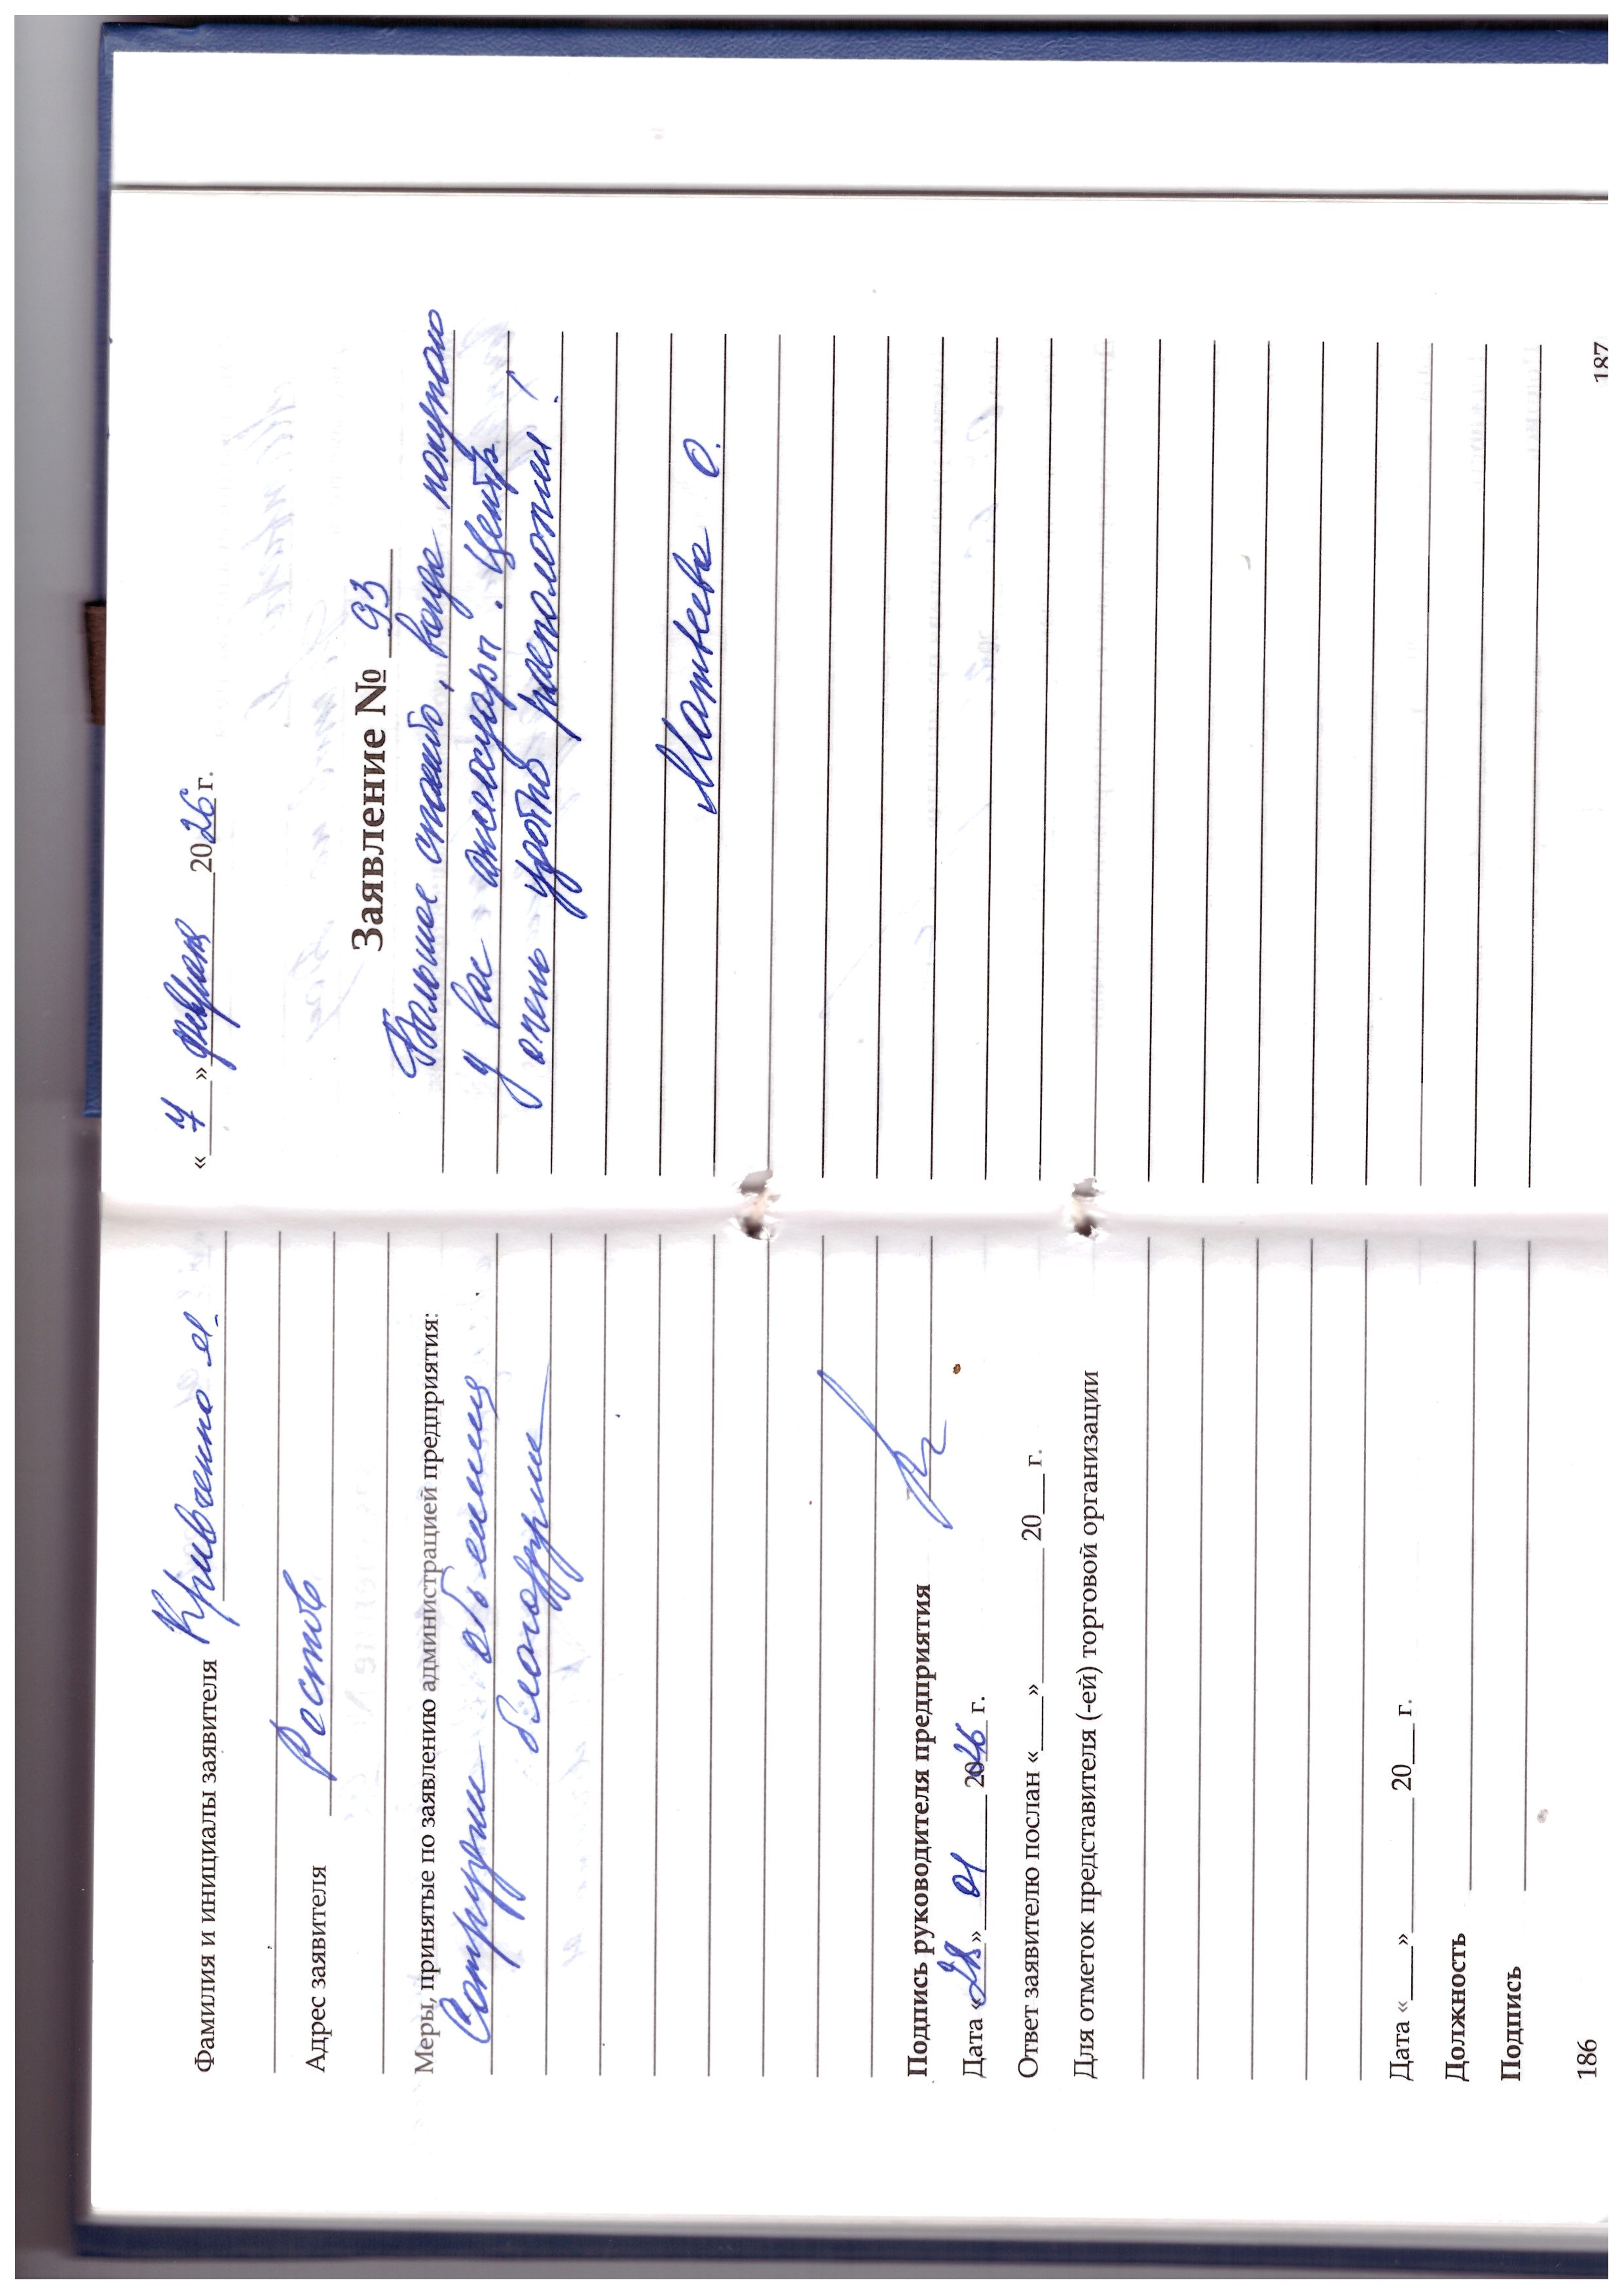 Фамилия и инициалы заявителя Кривченко И.
Адрес заявителя Ростов
Меры, принятые по заявлению администрацией предприятия:
Сотруднику объявлена
благодарность
Подпись руководителя предприятия
Дата «28» 01 2026 г.
Ответ заявителю послан «____» ________ 20___ г.
Для отметок представителя (-ей) торговой организации
Дата «____» ________ 20___ г.
Должность
Подпись
186
« 7 » февраля 2026 г.
Заявление № 93
Большое спасибо, всегда покупаю
у вас аксессуары. Центр
очень удобно расположен!
Матвеева О.
187